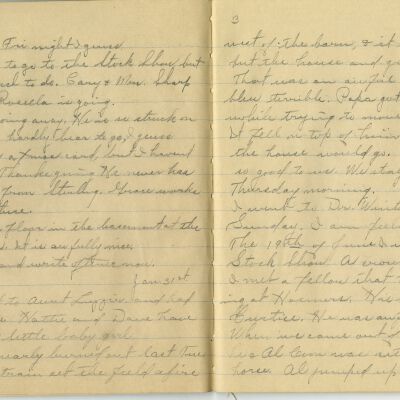 Fri night I guess
to go to the Stock Show but
to do. Cary & Mrs. Sharp
Rosella is going.
going away. He is so struck on
hardly bear to go, I guess
a Xmas card, but I haven't
Thanksgiving. He never has
from Sterling. Grace works
there.
floor in the basement at the
It is awfully nice.
and write often now.
Jan 31st
to Aunt Lizzie's and had
Hattie and Dave have
little baby girl
nearly burned out last Tue
train set the field afire
3
west of the barn, & it
but the house and
That was an awful
blew terrible. Papa got
while trying to move
It fell on top of him
the house would go.
so good to us. We stay
Thursday morning.
I went to Dr.
Sunday. I am
The 19th of June I
Stock Show. A crow
I met a fellow that
ing at His
Curtice. He was aw
When we came out of
Al was sit
horse. Al jumped up